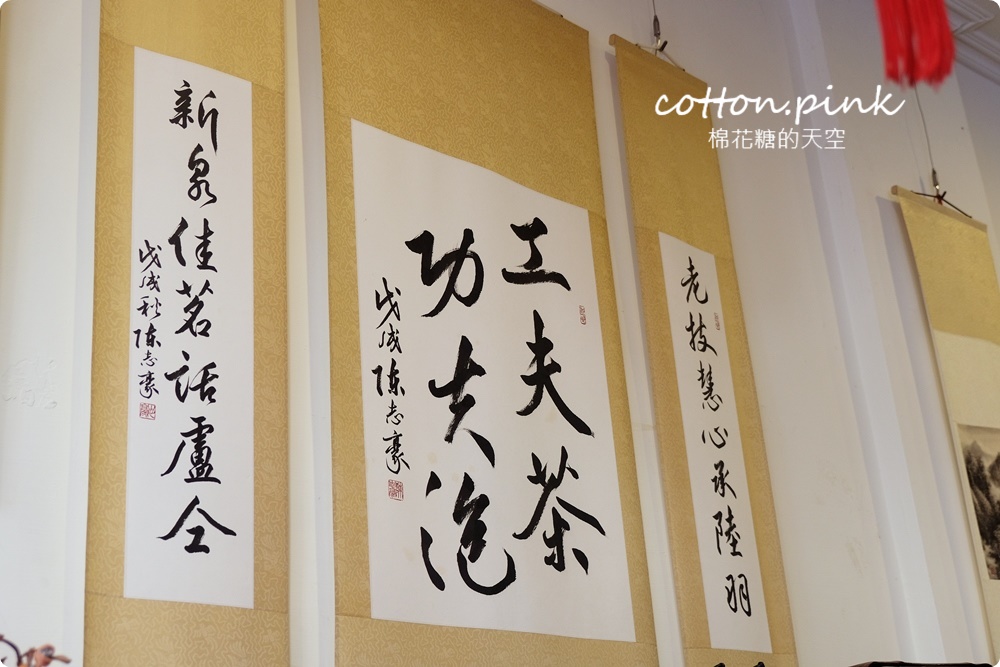 cotton.pink
棉花糖的天空
老技慧心承陸羽
工夫茶
功夫泡
戊戌陳志豪
新泉佳茗話盧仝
戊戌秋陳志豪